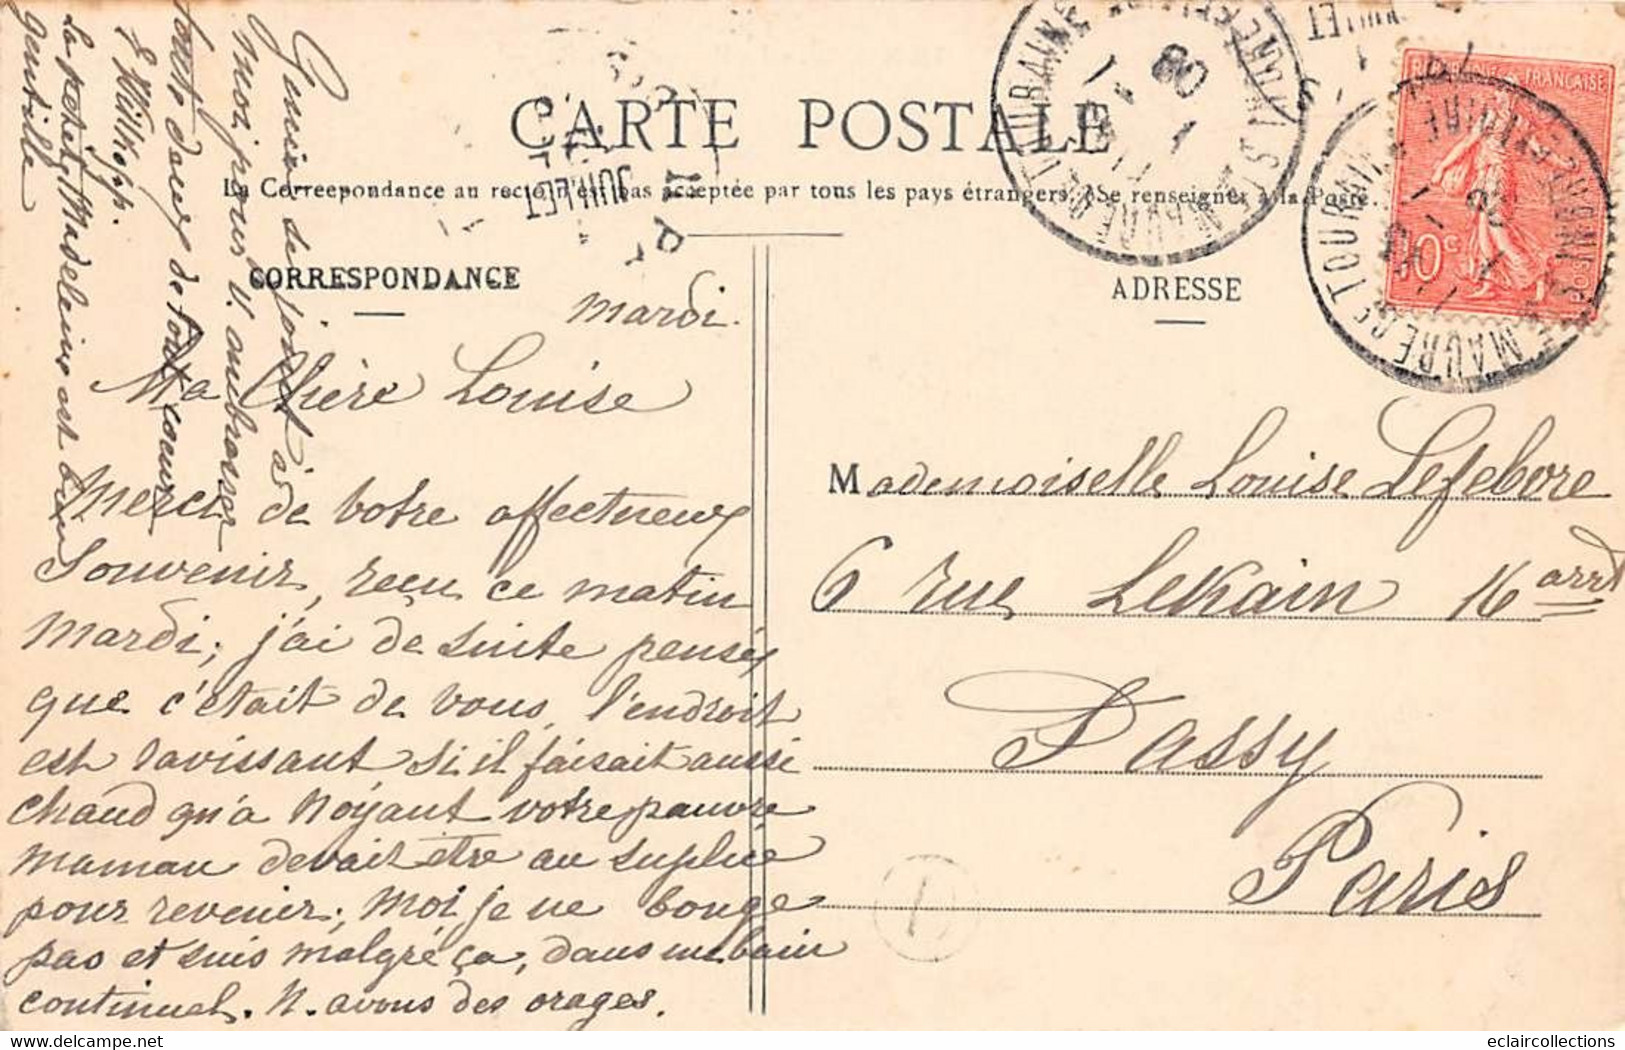 CARTE POSTALE
La Correspondance au recto n'est pas acceptée par tous les pays étrangers. (Se renseigner à la Poste.)
CORRESPONDANCE
ADRESSE
Mardi.
Ma Chère Louise
Merci de votre affectueux
Souvenir, reçu ce matin
Mardi; j'ai de suite pensé
que c'était de vous, l'endroit
est ravissant si il faisait aussi
chaud qu'a Noyant votre pauvre
maman devait être au suplice
pour revenir; Moi je ne bouge
pas et suis malgré ça, dans un bain
continuel. N. avons des orages.
Mademoiselle Louise Lefebvre
6 rue Lekain 16 arrt
Passy
Paris
de joint à
moi pour v. embrasser
toute deux de tout coeur
La petite Madeleine est bien
gentille
REPUBLIQUE FRANÇAISE
10c
POSTES
STE MAURE DE TOURAINE
INDRE ET LOIRE
JUILLET
eclaircollections